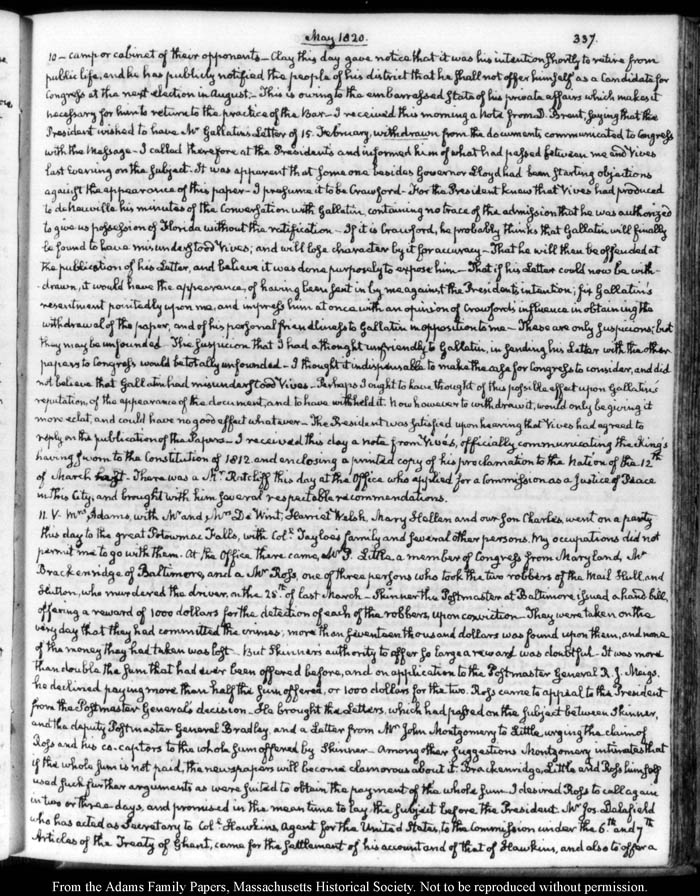 May 1820.
337.
10 – camp or cabinet of their opponents – Clay this day gave notice that it was his intention shortly to retire from
public life, and he has publicly notified the people of his district that he shall not offer himself as a Candidate for
Congress at the next election in August – This is owing to the embarrassed state of his private affairs which makes it
necessary for him to return to the practice of the Bar – I received this morning a Note from D. Brent, saying that the
President wished to have Mr. Gallatin's Letter of 15 February, withdrawn from the documents communicated to Congress
with the Message – I called therefore at the President's and informed him of what had passed between me and Vives
last evening on the subject. It was apparent that some one besides Governor Lloyd had been starting objections
against the appearance of this paper – I presume it to be Crawford – For the President knew that Vives had produced
to de Neuville his minutes of the Conversation with Gallatin, containing no trace of the admission that he was authorized
to give us possession of Florida without the ratification – If it is Crawford, he probably thinks that Gallatin will finally
be found to have misunderstood Vives; and will lose character by it for accuracy – That he will then be offended at
the publication of his Letter, and believe it was done purposely to expose him – That if his Letter could now be with-
-drawn, it would have the appearance, of having been sent in by me against the President's intention; fix Gallatin's
resentment pointedly upon me, and impress him at once with an opinion of Crawford's influence in obtaining the
withdrawal of the paper, and of his personal friendliness to Gallatin in opposition to me – These are only suspicions; but
they may be unfounded – The suspicion that I had a thought unfriendly to Gallatin, in sending his Letter with the other
papers to Congress would be totally unfounded – I thought it indispensable to make the case for Congress to consider, and did
not believe that Gallatin had misunderstood Vives – Perhaps I ought to have thought of this possible effect upon Gallatin's
reputation, of the appearance of the document, and to have withheld it. Now however to withdraw it, would only be giving it
more eclat, and could have no good effect whatever – The President was satisfied upon hearing that Vives had agreed to
reply on the publication of the Papers – I received this day a note from Vives, officially communicating the King's
having sworn to the Constitution of 1812 and enclosing a printed copy of his proclamation to the Nation of the 12th
of March last – There was a Mr. Ratcliff this day at the Office who applied for a Commission as a Justice of Peace
in this City, and brought with him several respectable recommendations.
11. V. Mrs. Adams, with Mr. and Mrs. De Wint, Harriet Welsh, Mary Hellen and our Son Charles, went on a party
this day to the great Potowmac Falls, with Coll. Tayloe's family and several other persons. My occupations did not
permit me to go with them. At the Office there came, Mr. P. Little, a member of Congress from Maryland, Mr.
Brackenridge of Baltimore, and a Mr. Ross, one of three persons who took the two robbers of the Mail Hull and
Hutton, who murdered the driver, on the 25th of last March – Skinner the Postmaster at Baltimore issued a hand bill,
offering a reward of 1000 dollars for the detection of each of the robbers, upon conviction – They were taken on the
very day that they had committed the crimes; more than seventeen thousand dollars was found upon them, and none
of the money they had taken was lost – But Skinner's authority to offer so large a reward was doubtful – It was more
than double the sum that had ever been offered before, and on application to the Postmaster General R. J. Meigs,
he declined paying more than half the sum offered, or 1000 dollars for the two. Ross came to appeal to the President
from the Postmaster General's decision. He brought the Letters, which had passed on the subject between Skinner,
and the deputy Postmaster General Bradley, and a Letter from Mr. John Montgomery to Little, urging the claim of
Ross and his co-captors to the whole sum offered by Skinner – Among other suggestions Montgomery intimates that
if the whole sum is not paid, the newspapers will become clamorous about it. Brackenridge, Little and Ross himself
used such further arguments as were suited to obtain the payment of the whole sum. I desired Ross to call again
in two or three days, and promised in the mean time to lay the subject before the President. Mr. Jos. Delafield
who has acted as Secretary to Coll. Hawkins, Agent for the United States, to the Commission under the 6th and 7th
Articles of the Treaty of Ghent, came for the settlement of his account and of that of Hawkins, and also to offer a
From the Adams Family Papers, Massachusetts Historical Society. Not to be reproduced without permission.